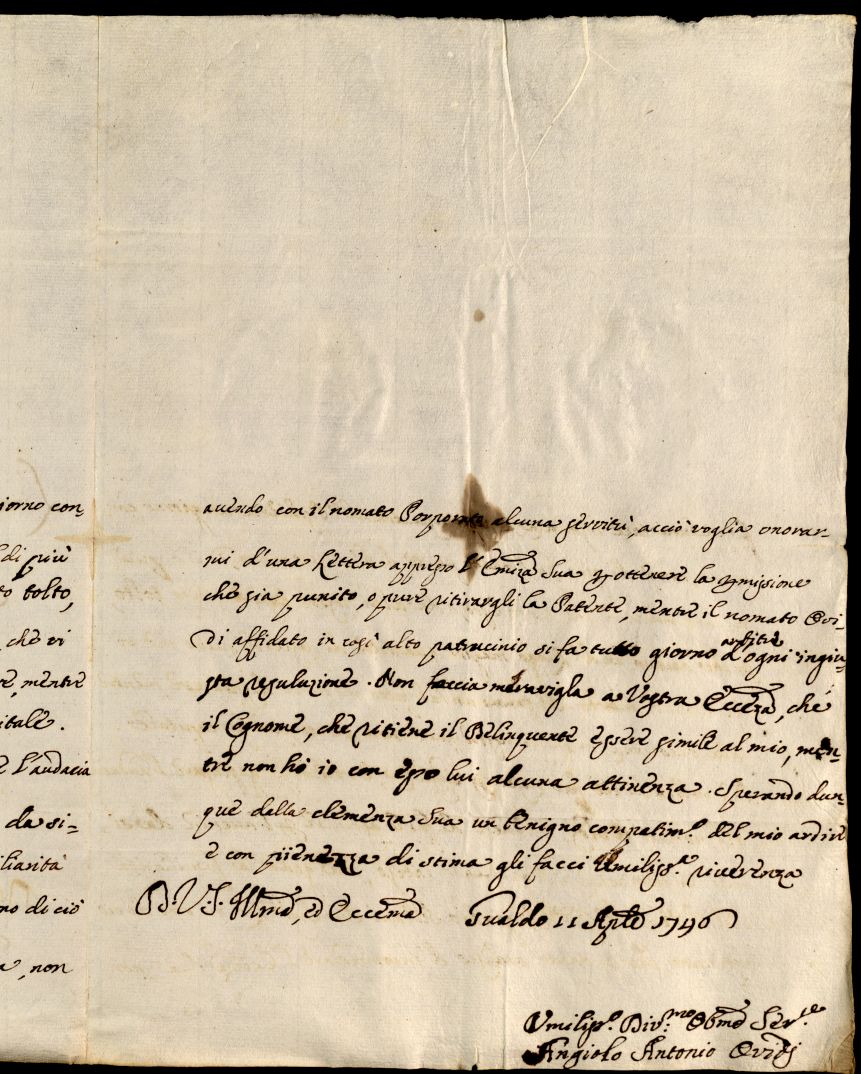 iorno con=
di più
to tolto,
che vi
re, mentre
itale.
e l'audacia
da si=
iliarità
no di ciò
a, non
avendo con il nomato Porporato alcuna servitù, acciò voglia onorar=
mi d'una Lettera appresso l'Emza Sua p ottenere la pmissione
che sia punito, o pure ritirargli la Patente, mentre il nomato Ovi=
di affidato in così alto patrocinio si fa tutto giorno ardire d'ogni ingiu=
sta resoluzione. Non faccia meraviglia a Vostra Eccza, che
il Cognome, che ritiene il Delinquente essere simile al mio, men=
tre non hò io con esso lui alcuna attinenza. Sperando dun=
que dalla clemenza Sua un benigno compatim.º del mio ardire
e con pienezza di stima gli facci Umiliss.ª riverenza
D. V. S. Illma, ed Eccema Gualdo 11 Aple 1746
Umiliss.º Div.mo Obmo Ser.re
Angiolo Antonio Ovidj